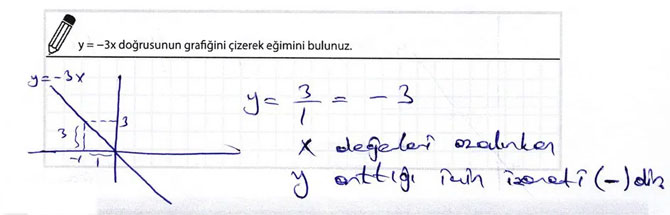 y = –3x doğrusunun grafiğini çizerek eğimini bulunuz.
y=-3x
3
3
-1
1
y= 3/1 = -3
x değerleri azalırken
y arttığı için işareti (-) dir